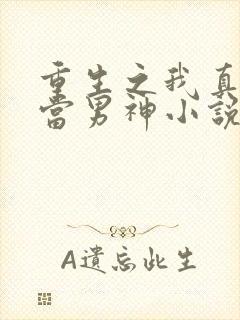 重生之我真
當男神小說
A遺忘此生